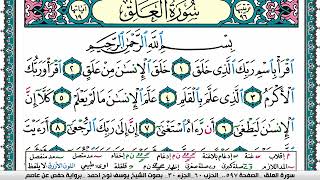 سُورَةُ الْعَلَقِ
بِسْمِ اللَّهِ الرَّحْمَٰنِ الرَّحِيمِ
ٱقْرَأْ بِٱسْمِ رَبِّكَ ٱلَّذِى خَلَقَ ١ خَلَقَ ٱلْإِنسَٰنَ مِنْ عَلَقٍ ٢ ٱقْرَأْ وَرَبُّكَ
ٱلْأَكْرَمُ ٣ ٱلَّذِى عَلَّمَ بِٱلْقَلَمِ ٤ عَلَّمَ ٱلْإِنسَٰنَ مَا لَمْ يَعْلَمْ ٥ كَلَّآ إِنَّ
ٱلْإِنسَٰنَ لَيَطْغَىٰٓ ٦ أَن رَّءَاهُ ٱسْتَغْنَىٰٓ ٧ إِنَّ إِلَىٰ رَبِّكَ ٱلرُّجْعَىٰٓ ٨ أَرَءَيْتَ
سورة العلق، الصفحة ٥٩٧، الحزب ٦٠، الجزء ٣٠، بصوت الشيخ يوسف نوح أحمد، برواية حفص عن عاصم